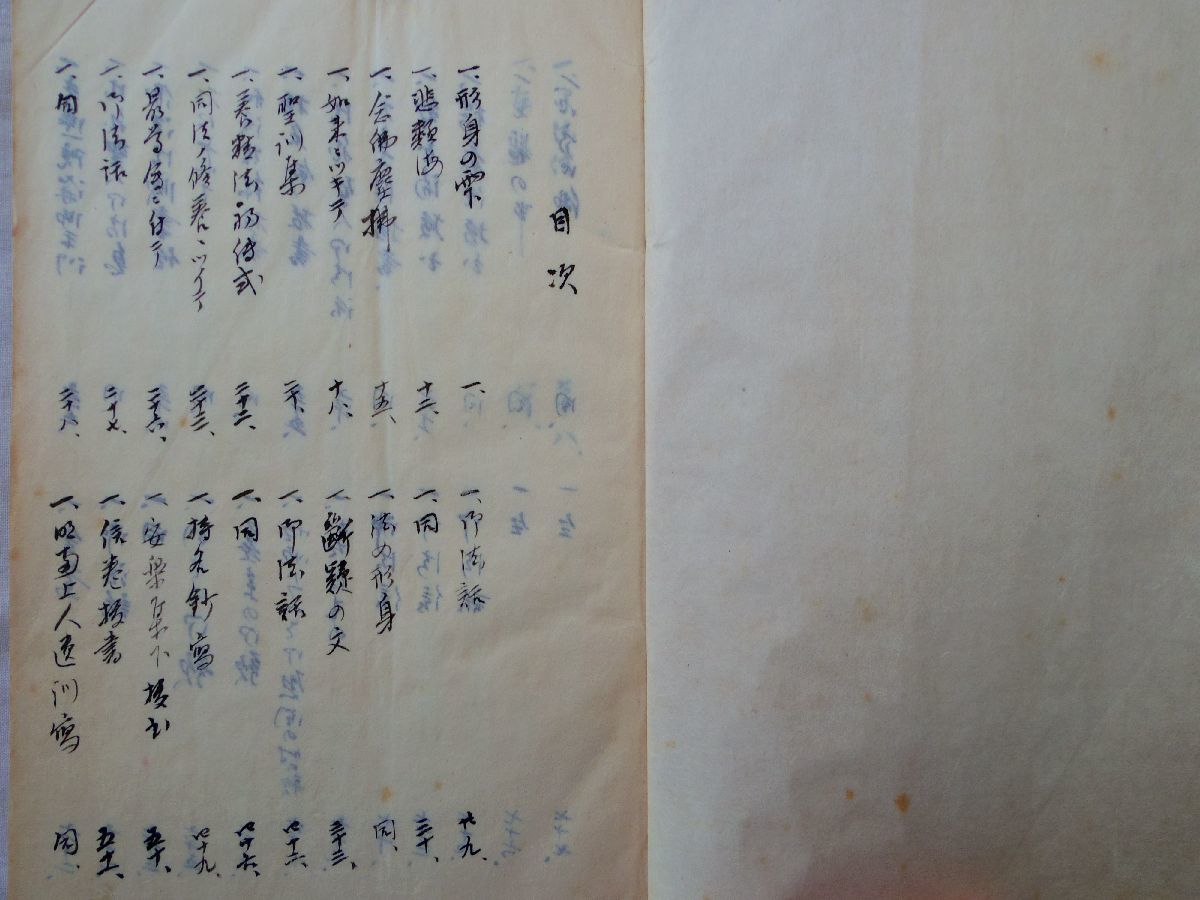 目次
一、形身の雫 一、
一、悲歎海 十二、
一、念佛塵拂 十五、
一、如来ニツキテ 十八、
一、聖訓集 二十、
一、養精法 式 二十二、
一、同法ノ修養ニツイテ 二十三、
一、ニ付テ 二十六、
一、御法話 二十七、
一、同 二十八、
一、御法話 廿九、
一、同 三十、
一、法の形身 同、
一、斷疑の文 三十三、
一、御法話 四十六、
一、同 四十六、
一、持名鈔寫 四十九、
一、安樂集下抜書 五十、
一、信巻抜書 五十一、
一、明遍上人遺訓寫 同、